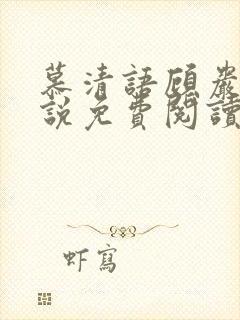 慕清語顧嚴
說免費閱讀
虾寫